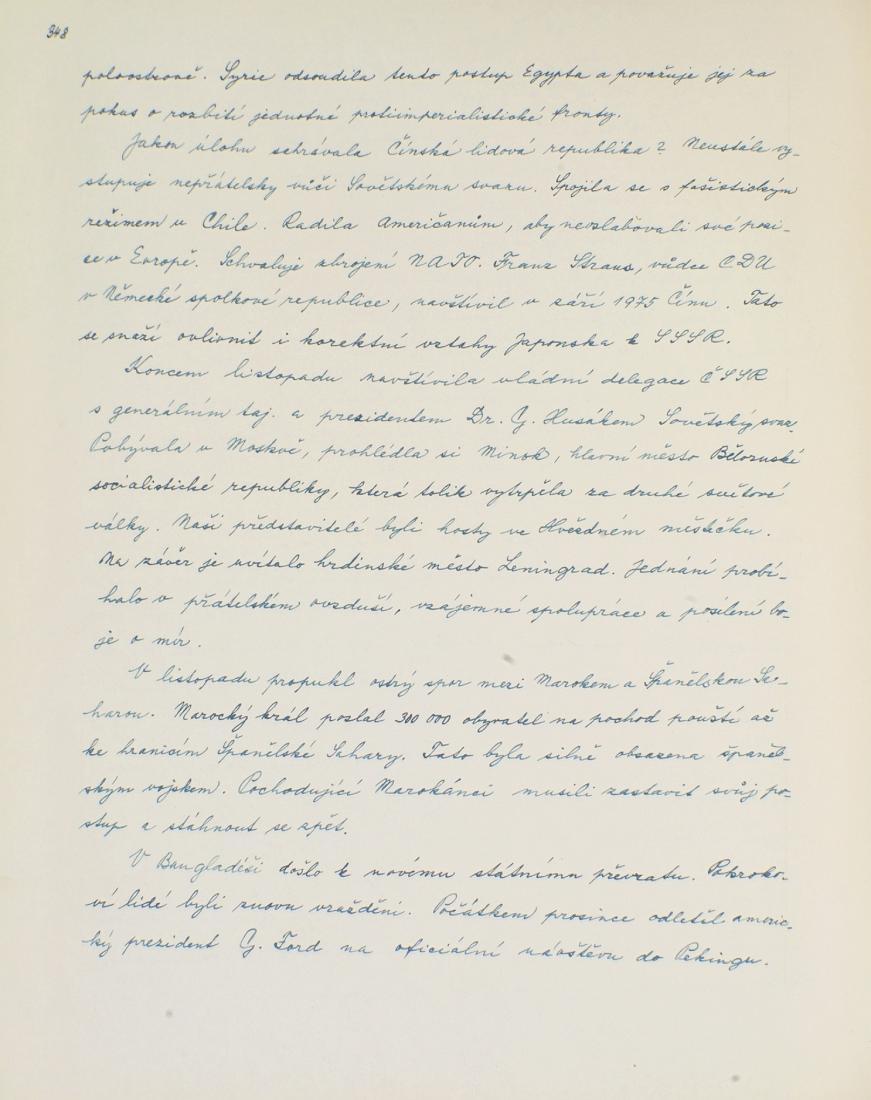 348
poloostrově. Syrie odsoudila tento postup Egypta a považuje jej za
pokus o rozbití jednotné protiimperialistické fronty.
Jakou úlohu sehrávala Čínská lidová republika? Neustále vy-
stupuje nepřátelsky vůči Sovětskému svazu. Spojila se s fašistickým
režimem v Chile. Radila Američanům, aby neoslabovali své pozi-
ce v Evropě. Schvaluje zbrojení NATO. Franz Straus, vůdce CDU
v Německé spolkové republice, navštívil v září 1975 Čínu. Tato
se snaží ovlivnit i korektní vztahy Japonska k SSSR.
Koncem listopadu navštívila vládní delegace ČSSR
s generálním taj. a prezidentem Dr. G. Husákem Sovětský svaz.
Pobývala v Moskvě, prohlédla si Minsk, hlavní město Běloruské
socialistické republiky, která tolik vytrpěla za druhé světové
války. Naši představitelé byli hosty ve Hvězdném městečku.
Na závěr je uvítalo hrdinské město Leningrad. Jednání probí-
halo v přátelském ovzduší, vzájemné spolupráce a posílení bo-
je o mír.
V listopadu propukl ostrý spor mezi Marokem a Španělskou Sa-
harou. Marocký král poslal 300 000 obyvatel na pochod pouští až
ke hranicím Španělské Sahary. Tato byla silně obsazena španěl-
ským vojskem. Pochodující Marokánci musili zastavit svůj po-
stup a stáhnout se zpět.
V Bangladéši došlo k novému státnímu převratu. Pokroko-
ví lidé byli znovu vražděni. Počátkem prosince odletěl americ-
ký prezident G. Ford na oficiální návštěvu do Pekingu.